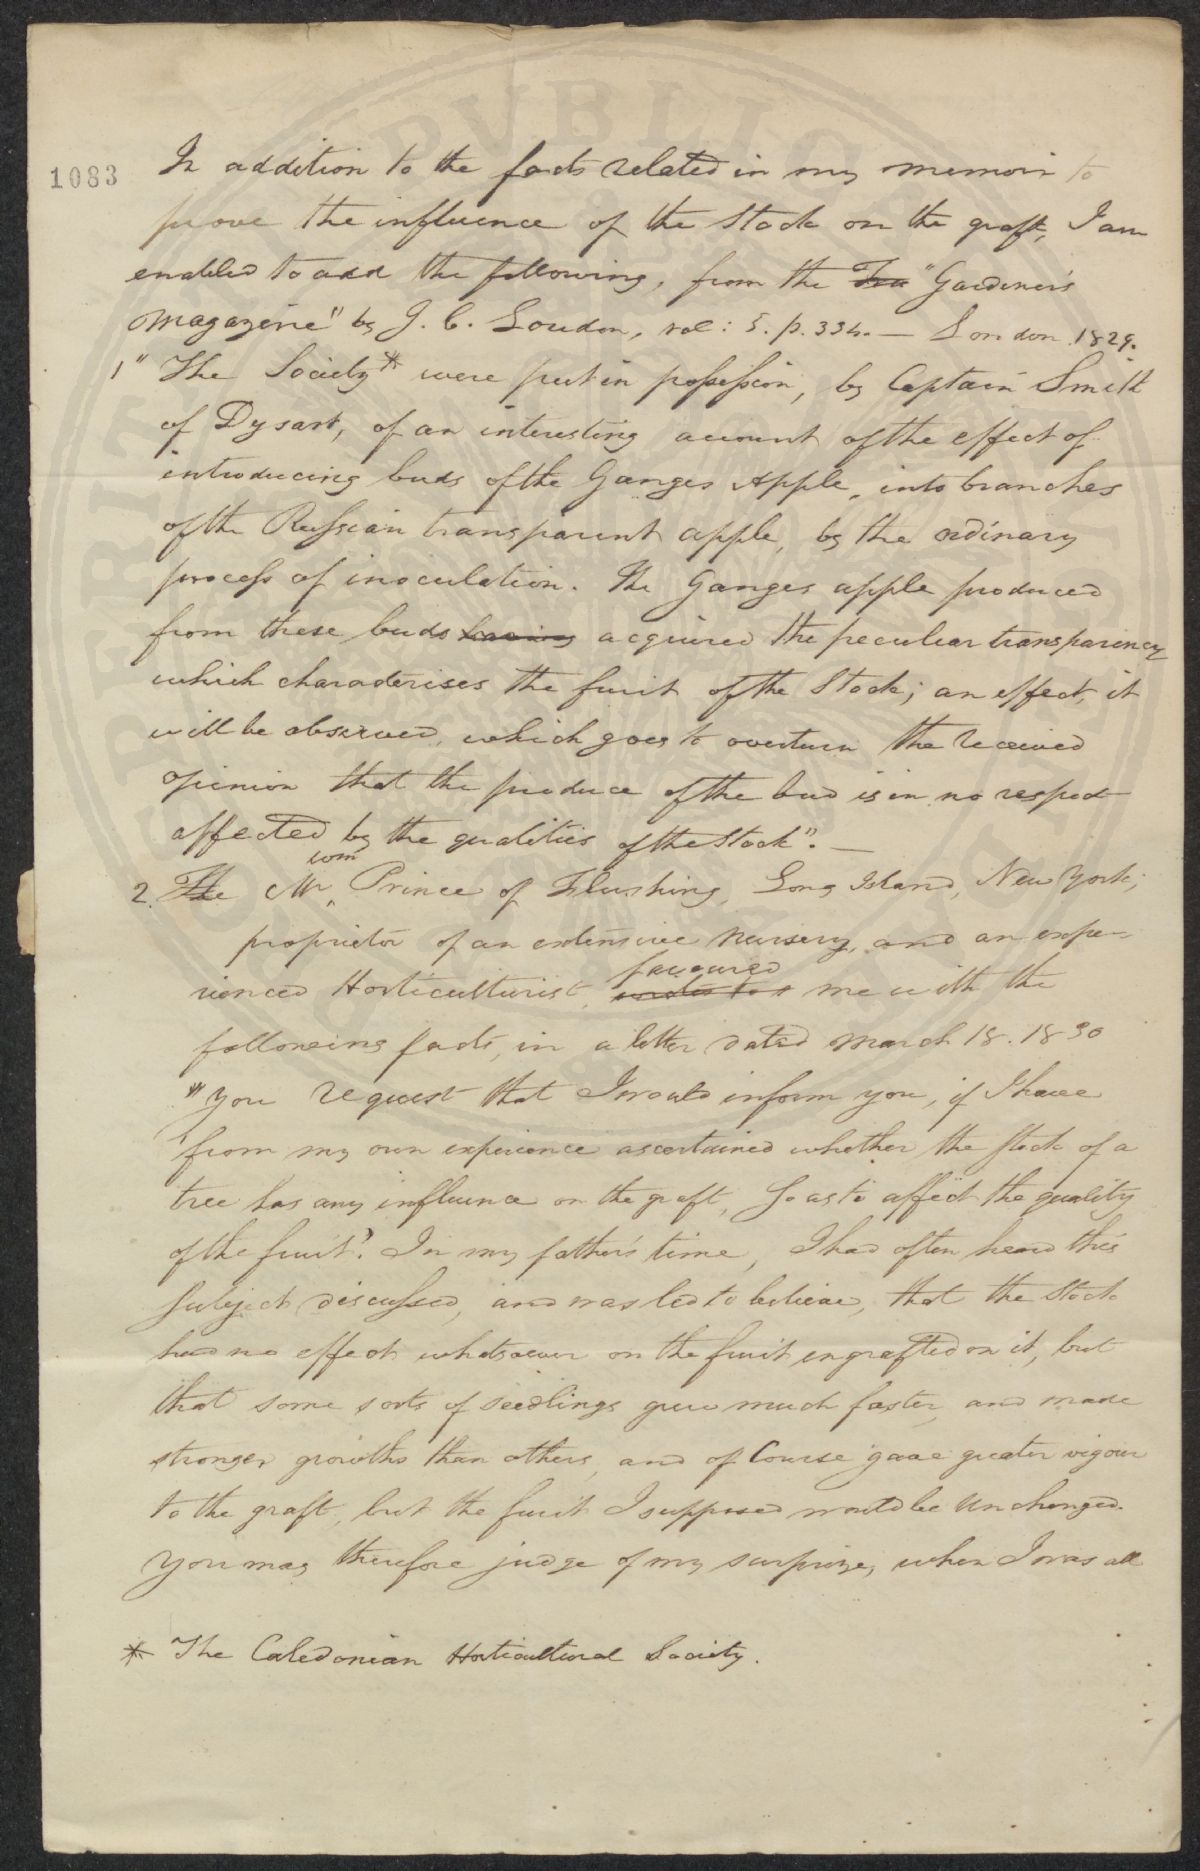 1083
In addition to the facts related in my memoir to
prove the influence of the stock on the graft, I am
enabled to add the following, from the "Gardener's
Magazine" by J. C. Loudon, vol: 5. p. 334. — London. 1829.
1" The Society* were put in possession, by Captain Smith
of Dysart, of an interesting account of the effect of
introducing buds of the Ganges Apple, into branches
of the Russian transparent apple, by the ordinary
process of inoculation. The Ganges apple produced
from these buds having acquired the peculiar transparency
which characterises the fruit of the Stock; an effect, it
will be observed, which goes to overturn the received
opinion that the produce of the bud is in no respect
affected by the qualities of the Stock". —
2. The Mr Wm Prince of Flushing, Long Island, New York;
proprietor of an extensive nursery, and an expe-
rienced Horticulturist, favoured me with the
following facts, in a letter dated March 18. 1830
"You request that I would inform you, if I have
from my own experience ascertained whether the stock of a
tree has any influence on the graft, so as to affect the quality
of the fruit? In my father's time, I had often heard this
subject discussed, and was led to believe, that the Stock
had no effect whatsoever on the fruit engrafted on it, but
that some sorts of seedlings grew much faster, and made
stronger growths than others, and of Course gave greater vigour
to the graft, but the fruit I supposed would be unchanged.
You may therefore judge of my surprize, when I was all
* The Caledonian Horticultural Society.